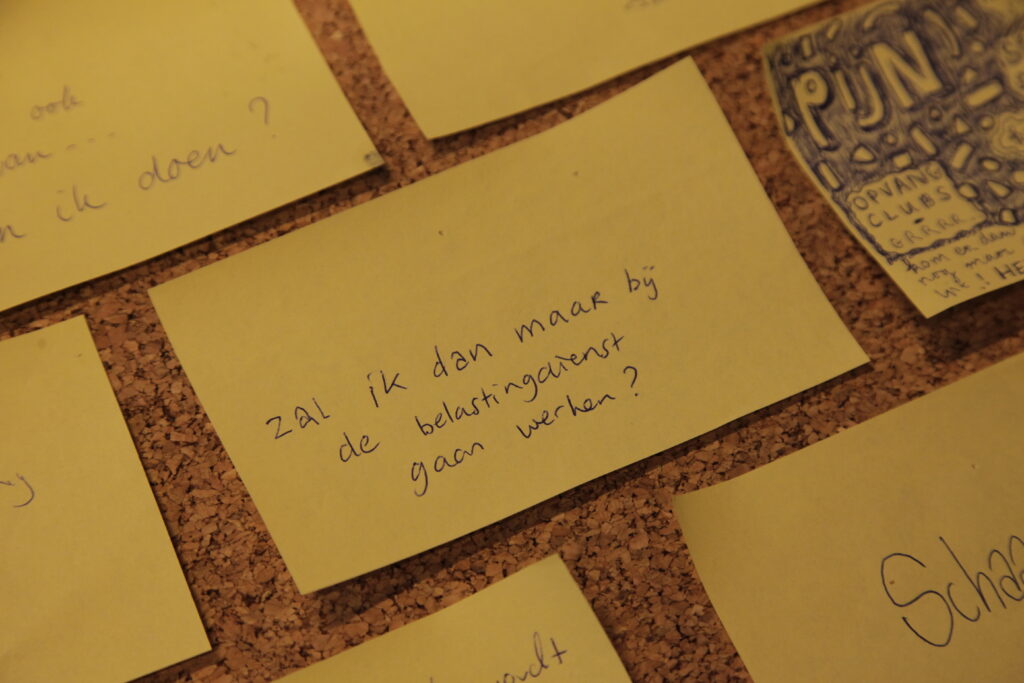 ook
doen?
ik
zal ik dan maar bij
de belastingdienst
gaan werken?
PIJN
OPVANG
CLUBS
GRRRR
kom en dan
nog man
uit!! HE
Scha